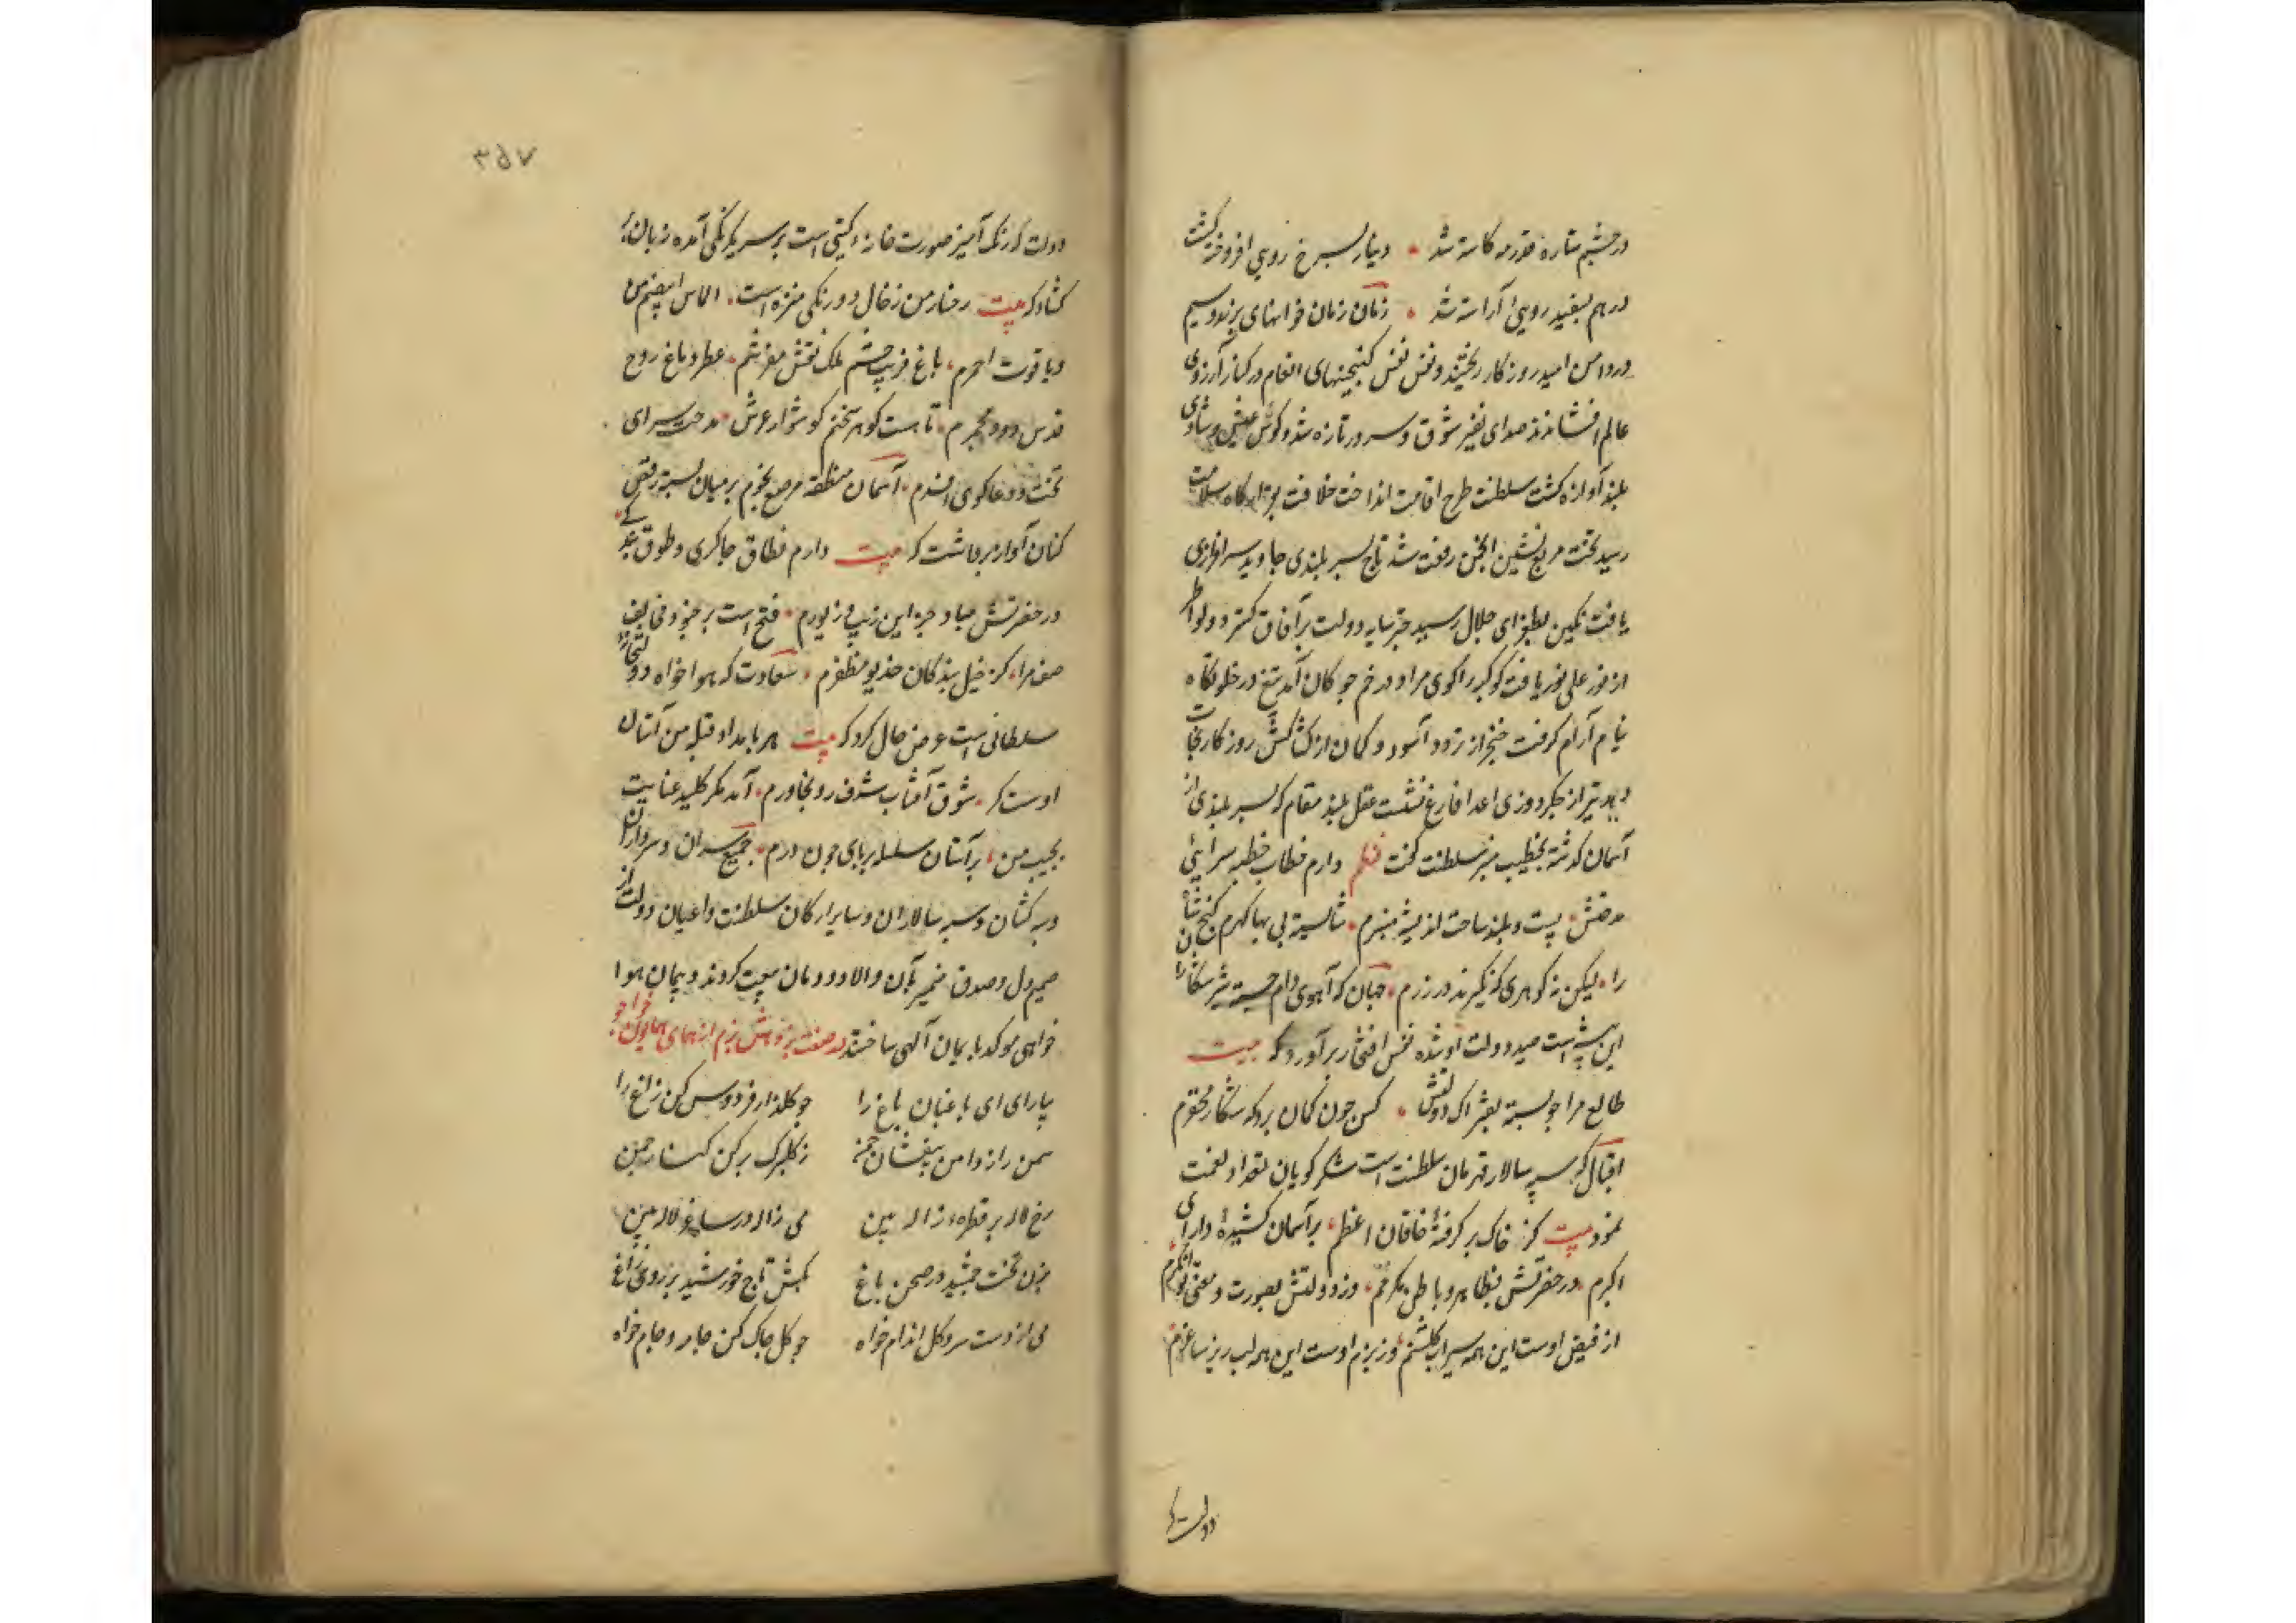 در چشم ستاره قدر مه کاسته شد • دینار بسرخ رویی افروخته گشت
درهم بسفید رویی آراسته شد • زمان زمان خوانهای پر زر و سیم
در دامن امید روزگار ریختند و نفس نفس گنجینهای انعام در کنار آرزوی
عالم افشاندند صدای نفیر شوق و سرور تازه شد و کوس عیش و شادی
بلند آوازه گشت سلطنت طرح اقامت انداخت خلافت بقرارگاه سلامت
رسید تخت مربع نشین انجمن رفعت شد تاج بسر بلندی جاوید سرافرازی
یافت نگین بطغرای جلال رسید چتر سایه دولت بر آفاق گسترد و لوا
از نور علی نور یافت کوکبه را گوی مراد در خم چوگان آمد تیغ در خلوتگاه
نیام آرام گرفت خنجر از تردد آسود و کمان از کشاکش روزگار نجات
دید تیر از جگردوزی اعدا فارغ نشست عقل بلند مقام که بسر بلندی از
آسمان گذشته بخطیب منبر سلطنت گفت نظم دارم خطاب خطبه سرایی
مدحتش • پست و بلند ساخت اندیشه منبرم • شایسته بی بها گهرم گنج شاه
را • لیکن نه گوهری که نگیرند در زرم • جهان که آهوی دام جسته شیر شکاران
این بیشه است صید دولت او شده نفس افتخار بر آورد که بیت
طالع مرا چو بسته بفتراک دولتش • کس چون گمان برد که شکار محقرم
اقبال که سپه سالار قهرمان سلطنت است شکر گویان بتعداد نعمت
نمود بیت کز خاک برگرفتهٔ خاقان اعظم • بر آسمان کشیدهٔ دارای
اکرم • در حضرتش بظاهر و باطن مکرمم • وز دولتش بصورت و معنی توانگرم
از فیض اوست این همه سیراب گلشنم • وز بزم اوست این همه لب ریز ساغرم
دولت که
۳۵۷
دولت که رنگ آمیز صورت خانه گیتی است بر سر یکرنگی آمده زبان
گشاد که بیت رخسار من ز خال دو رنگی منزه است • الماس ابیضم من
و یاقوت احمرم • باغ فریب چشم ملک نقش مفرشم • عطر دماغ روح
قدس دود مجمرم • تا هست گوهر سخنم گوشوار عرش • مدحت سرای
تخت و دعاگوی افسرم • آسمان منطقه مرصع نجوم بر میان بسته رقص
کنان آواز برداشت که بیت دارم نطاق چاکری و طوق بندگی •
در حضرتش مباد جز این زیب و زیورم • فتح است بر جنود مخالف
صف مرا • کز خیل بندگان خدیو مظفرم • سعادت که هوا خواه دولتخانه
سلطانی است عرض حال کرد که بیت هر بامداد قبله من آستان
اوست کز • شوق آفتاب شرف رو بخاورم • آمد مگر کلید عنایت
بجیب من • بر آستان سلسله بر پای چون درم • جمیع سران و سرداران
و سرکشان و سپه سالاران و سایر ارکان سلطنت و اعیان دولت از
صمیم دل و صدق ضمیر بآن والا دودمان بیعت کردند و پیمان هوا
خواهی موکد بایمان الهی ساختند در صفت
بیارای ای باغبان باغ را چو گلزار فردوس کن راغ را
سمن را ز دامن بیفشان ز گلبرگ پر کن کنار چمن
رخ لاله پر قطرهء ژاله بین می ژاله در ساغر لاله بین
بزن تخت جمشید در صحن باغ بکش تاج خورشید بر روی راغ
می از دست سرو گل اندام خواه چو گل چاک کن جامه و جام خواه